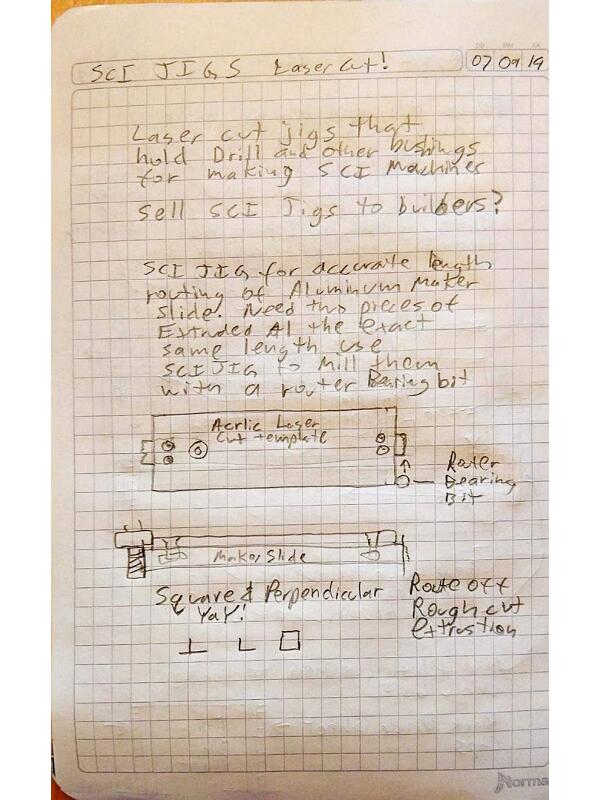 SCI JIGS Laser cut!
07 09 19
Laser cut jigs that
hold Drill and other bushings
for making SCI Machines
Sell SCI Jigs to builders?
SCI JIG for accurate length
routing of Aluminum Maker
Slide. Need two pieces of
Extruded Al the exact
same length use
SCI JIG to Mill them
with a router Bearing bit
Acrlic Laser
Cut template
Router
Bearing
Bit
Maker Slide
Square & Perpendicular
YaY!
Route off
Rough cut
extrustion
Norma